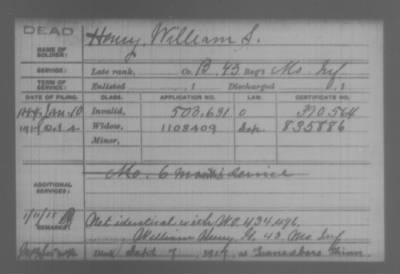 DEAD
NAME OF SOLDIER: Henry, William S.
SERVICE: Late rank, Co. B, 43 Reg't Mo. Inf
TERM OF SERVICE: Enlisted , 1 Discharged , 1
DATE OF FILING. CLASS. APPLICATION NO. LAW. CERTIFICATE NO.
Jan. 10 Invalid, 503.631
191 Oct 4 Widow, 1108409 835886
Minor,
ADDITIONAL SERVICES: Mo. 6 months service
REMARKS: Not identical with WO 434,496.
William Henry G. 43. Mo Inf
Died Sept 7, 191 at Minn.